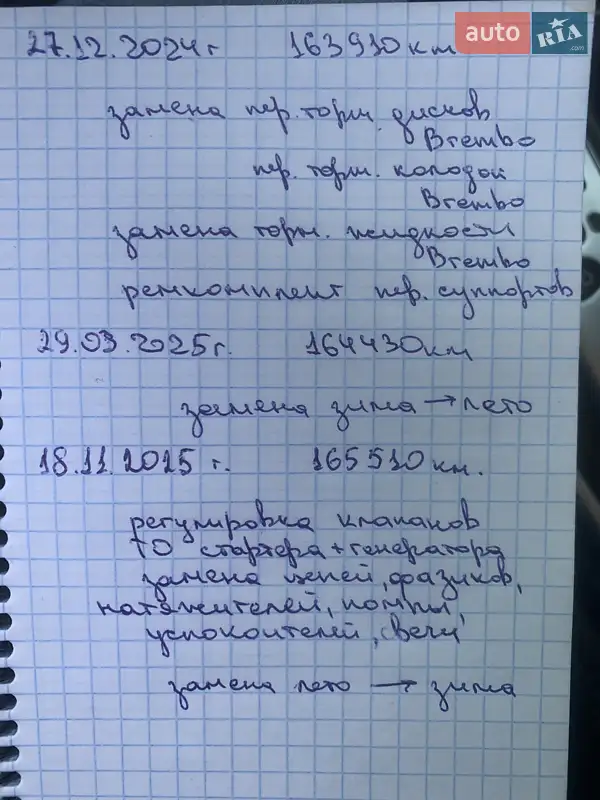 auto RIA .com
27.12.2024 г 163910 км
замена пер. торм. дисков
Brembo
пер. торм. колодок
Brembo
замена торм. жидкости
Brembo
ремкомплект пер. суппортов
29.03.2025 г. 164430 км
замена зима → лето
18.11.2025 г. 165510 км.
регулировка клапанов
ТО стартера + генератора
замена цепей, фазиков,
натяжителей, помпы,
успокоителей, свечи
замена лето → зима